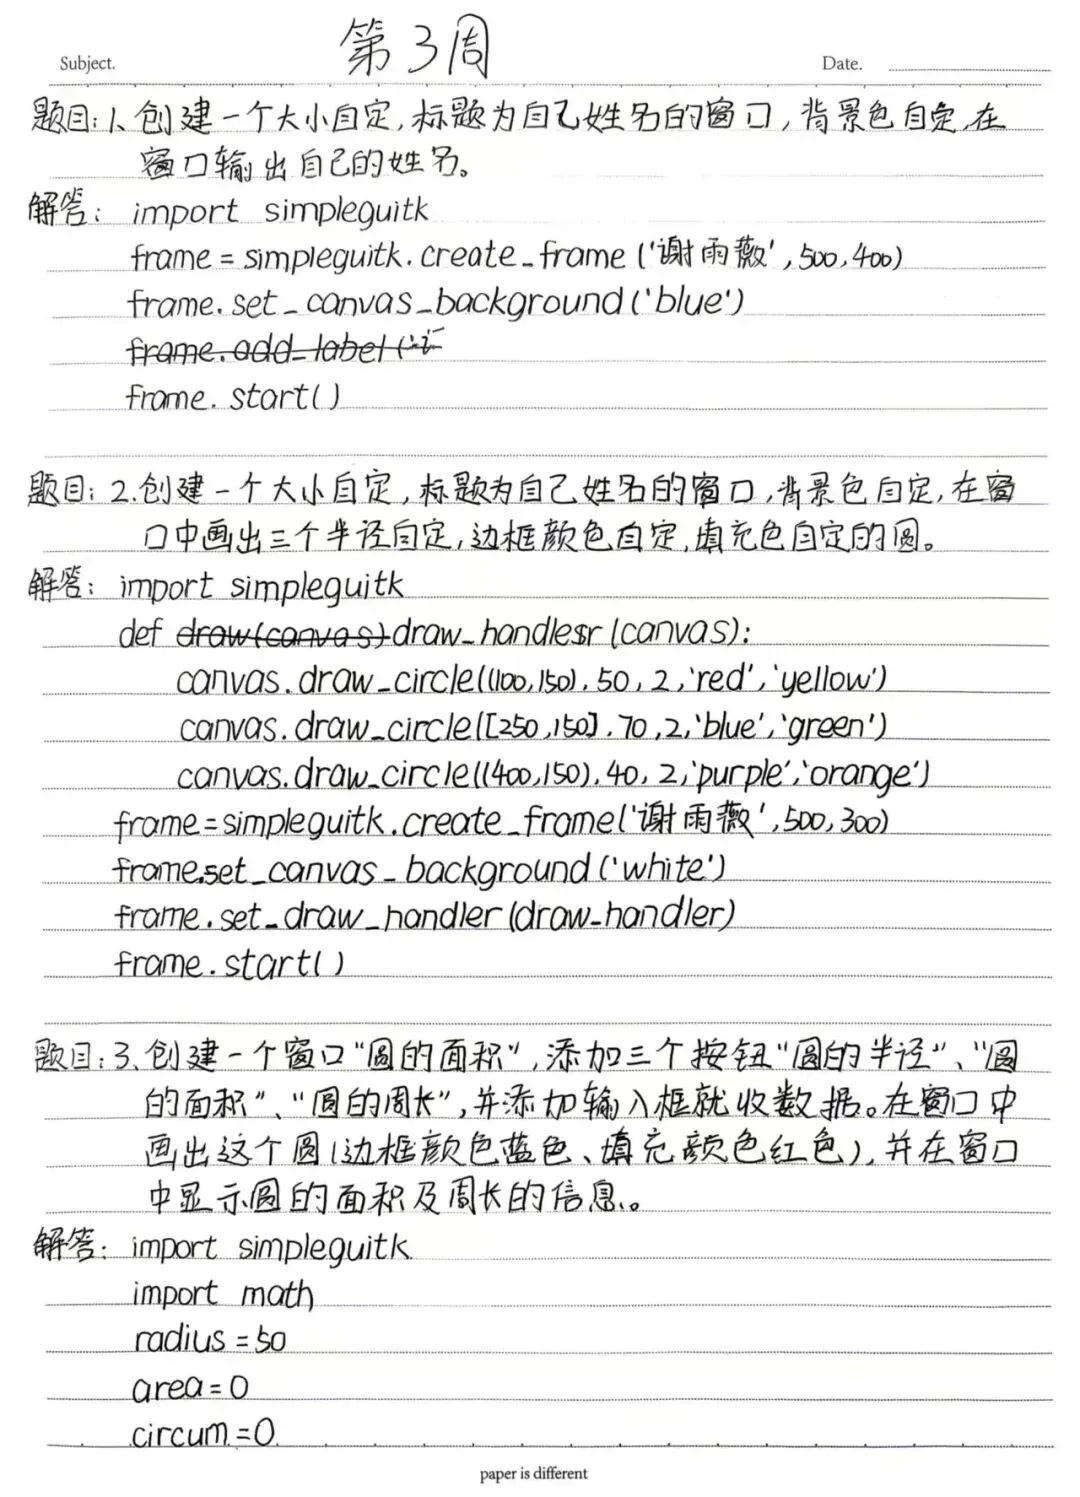 第3周
Subject.
Date.
题目:1、创建一个大小自定,标题为自己姓名的窗口,背景色自定,在
窗口输出自己的姓名。
解答: import simpleguitk
frame = simpleguitk.create_frame ('谢雨薇',500,400)
frame.set_canvas_background('blue')
frame.add_label('
frame.start()
题目:2.创建一个大小自定,标题为自己姓名的窗口,背景色自定,在窗
口中画出三个半径自定,边框颜色自定,填充色自定的圆。
解答: import simpleguitk
def draw(canvas) draw_handlesr (canvas):
canvas.draw_circle((100,150),50,2,'red','yellow')
canvas.draw_circle([250,150],70,2,'blue','green')
canvas.draw_circle((400,150),40,2,'purple','orange')
frame=simpleguitk.create_frame('谢雨薇',500,300)
frame.set_canvas_background('white')
frame.set_draw_handler(draw_handler)
frame.start()
题目:3、创建一个窗口“圆的面积”,添加三个按钮“圆的半径”、“圆
的面积”、“圆的周长”,并添加输入框就收数据。在窗口中
画出这个圆(边框颜色蓝色、填充颜色红色),并在窗口
中显示圆的面积及周长的信息。
解答: import simpleguitk
import math
radius=50
area=0
circum=0
paper is different